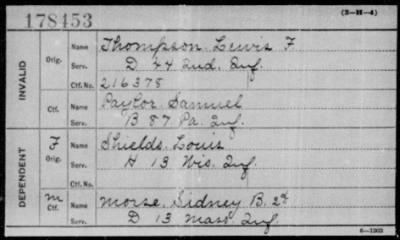 178453
(3-H-4)
INVALID
Orig.
Name Thompson Lewis F.
Serv. D 44 Ind. Inf.
Ctf. No. 216378
Ctf.
Name Paylor Samuel
Serv. B 87 Pa. Inf.
DEPENDENT
F
Orig.
Name Shields Louis
Serv. H 13 Wis. Inf.
Ctf. No.
M
Ctf.
Name Morse, Sidney B. 2d
Serv. D 13 Mass Inf.
6-1302